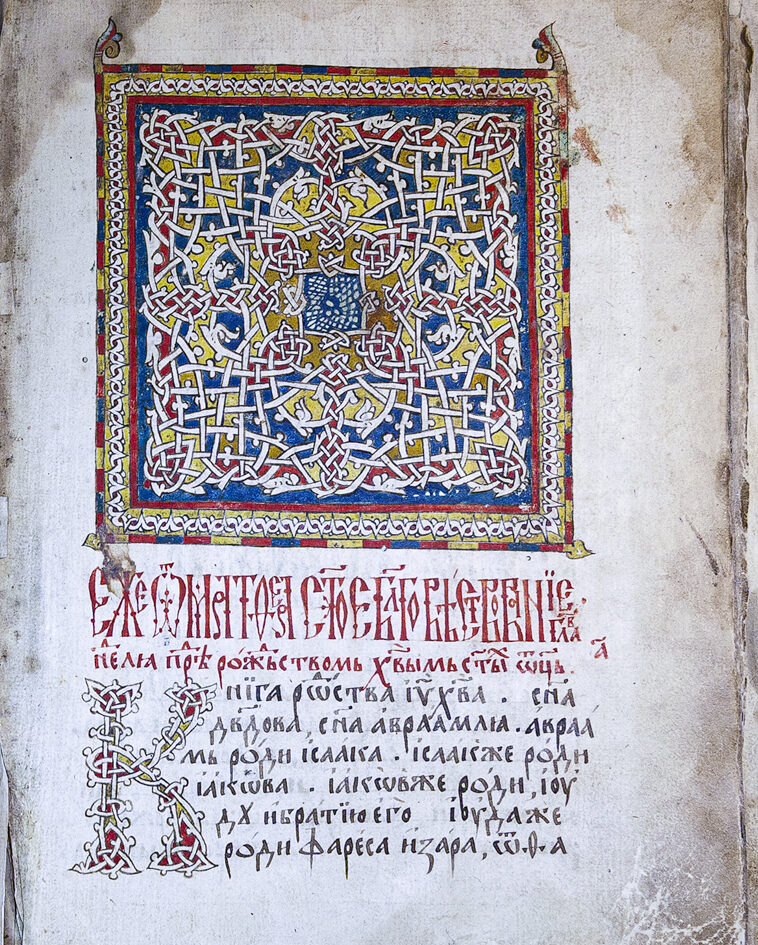 Еже ѿ Матѳеа ст҃ое бл҃говѣствованїе. глв҃а
нелѧ прⷣѣ рожⷣьствомь хв҃ымь ст҃ы ѿц҃ь. а҃
Книга рѡⷤства і҃у хв҃а . сн҃а
дв҃дова, сн҃а авраамлѧ . авраа
мь роди ісаака . ісаакже роди
іакѡва . іакѡвже роди, іоу
дꙋ ибратїю его . іоудаже
роди фареса изара, ѿ.ѳ.а